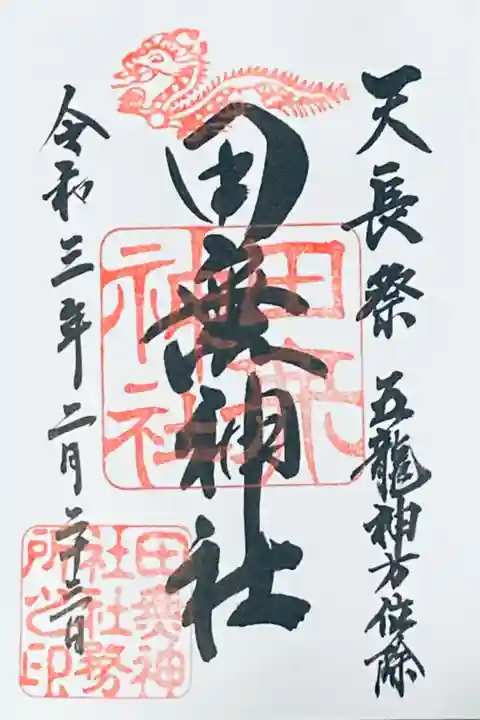 天長祭 五龍神方位除
田無神社
令和三年二月二十三日
田無神社
田無神社社務所之印